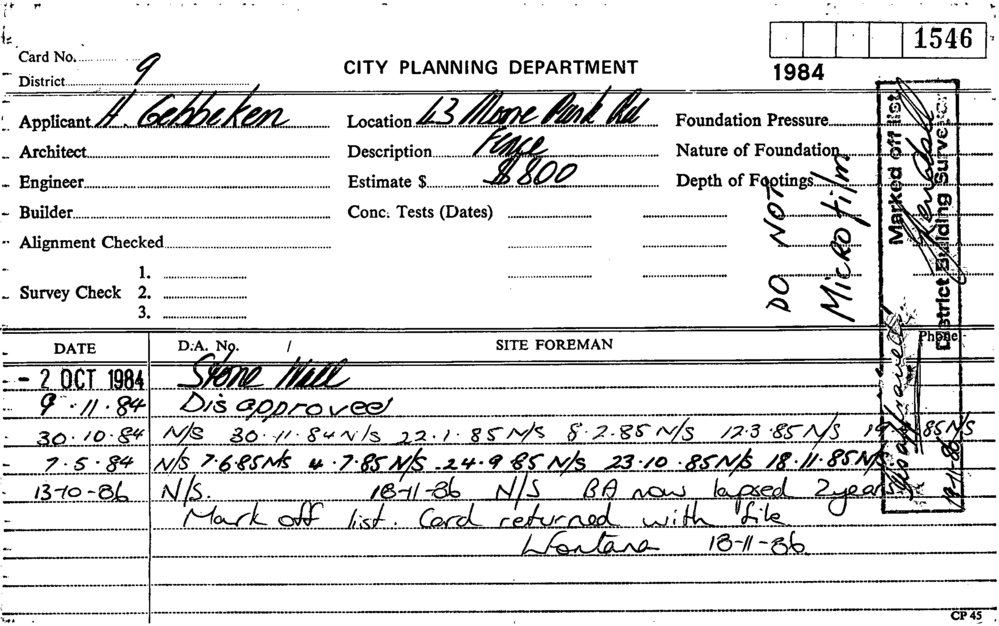 1546
Card No.
9
CITY PLANNING DEPARTMENT
1984
District
Applicant H. Gebbeken
Location 43 Moore Park Rd
Foundation Pressure
Architect
Description Fence
Nature of Foundation
Engineer
Estimate $ $800
Depth of Footings
Builder
Conc. Tests (Dates)
DO NOT
MICROfilm
Alignment Checked
1.
Survey Check 2.
3.
Marked off list
District Building Surveyor
DATE D.A. No. / SITE FOREMAN Phone
- 2 OCT 1984 Stone Wall
9 . 11 . 84 Disapproved
30.10.84 N/S 30.11.84 N/S 22.1.85 N/S 8.2.85 N/S 12.3.85 N/S 19 85 N/S
7.5.84 N/S 7.6.85 N/S 4.7.85 N/S .24.9 85 N/S 23.10.85 N/S 18.11.85 N/S
13-10-86 N/S. 18-11-86 N/S BA now lapsed 2 years
Mark off list. Card returned with file
18-11-86
18-11-86
CP 45